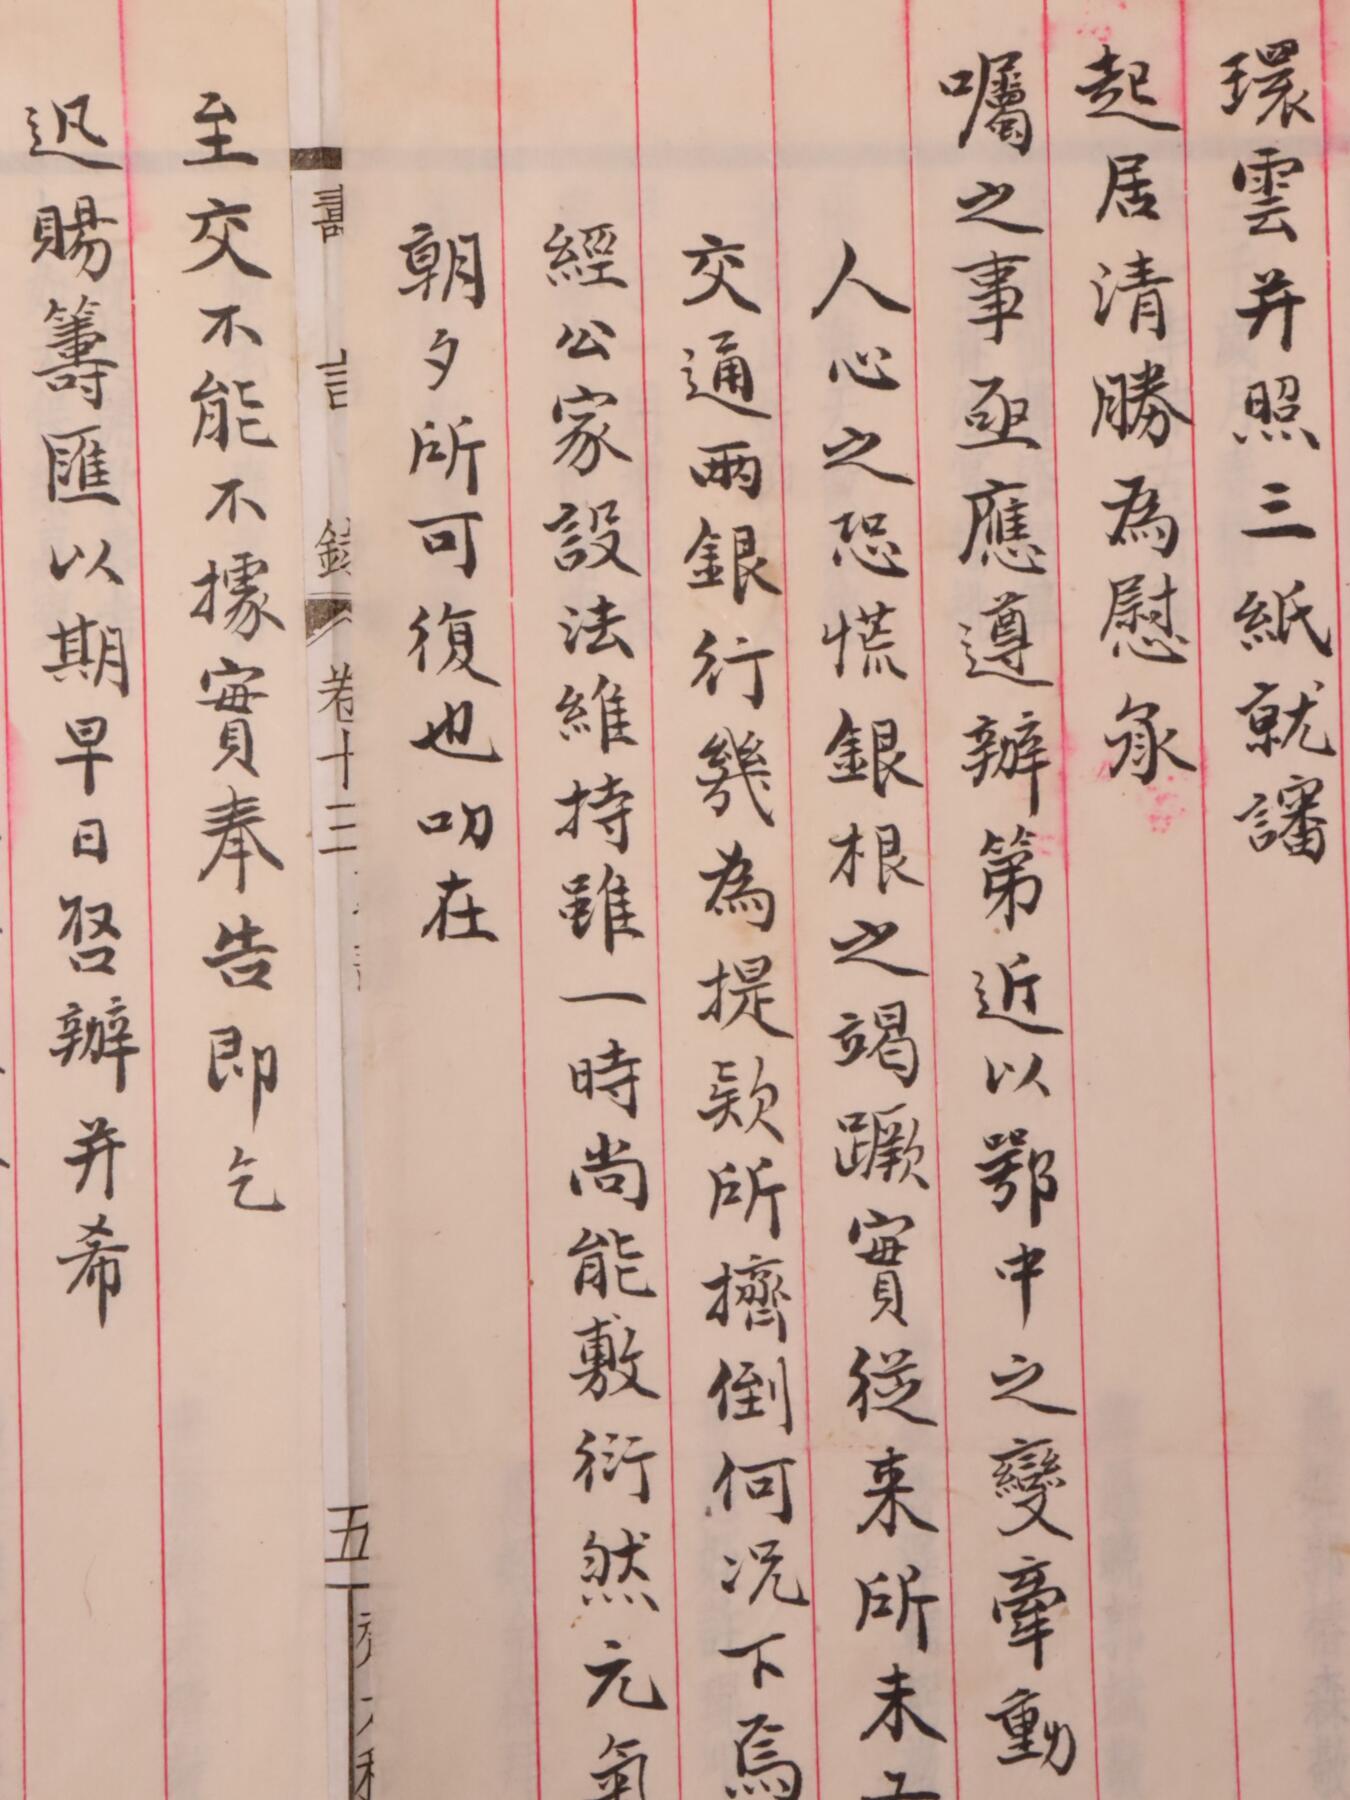 環雲并照三紙就讅
起居清勝為慰承
囑之事亟應遵辦第近以鄂中之變牽動
人心之恐慌銀根之竭蹶實從来所未
交通兩銀行幾為提欵所擠倒何況下焉
經公家設法維持雖一時尚能敷衍然元氣
朝夕所可復也叨在
卷十三
五
至交不能不據實奉告即乞
迅賜籌匯以期早日啓辦并希